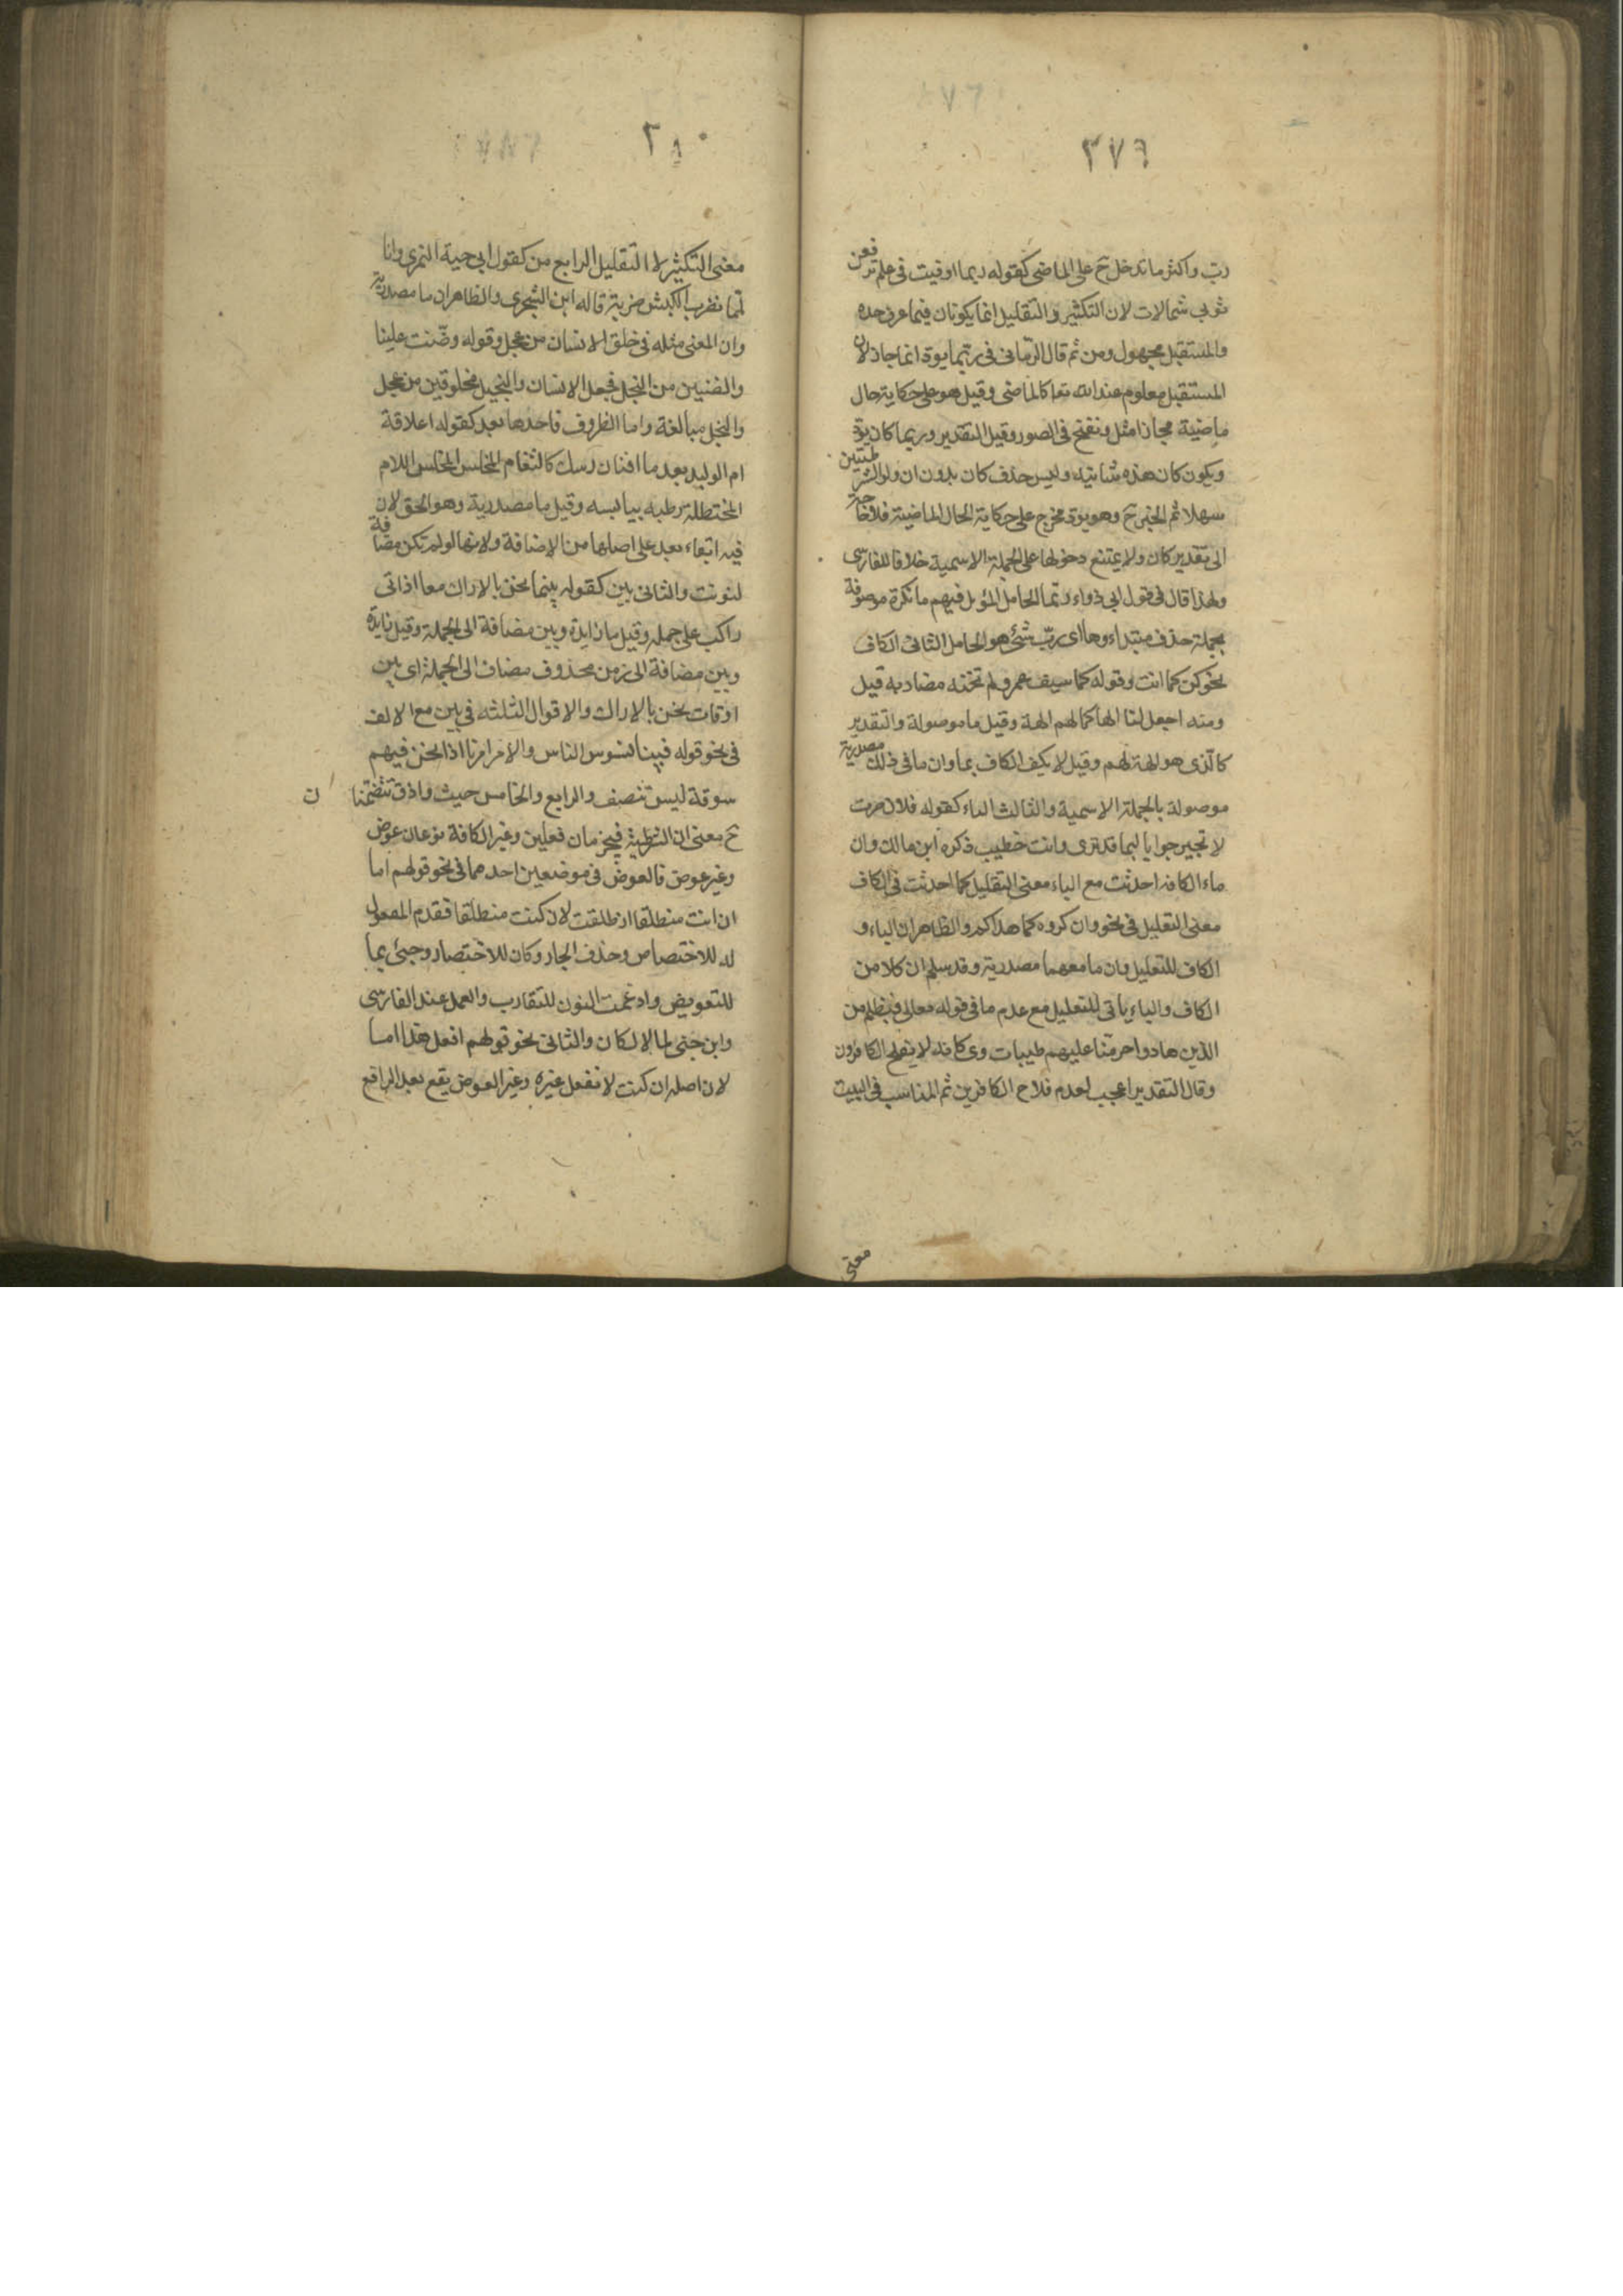 ٢٧٦
رب واكثر ما تدخل ح على الماضى كقوله ربما اوفيت فى علم ترفعن
ثوبى شمالات لان التكثير والتقليل انما يكونان فيما عرف حده
والمستقبل مجهول ومن ثم قال الرمانى فى ربما يود انما جاز لان
المستقبل معلوم عند الله تعا كالماضى وقيل هو على حكاية حال
ماضية مجازا مثل ونفخ فى الصور وقيل التقدير وربما كان يود
ويكون كان هذه شانية وليس حذف كان بدون ان ولو الشرطيتين
سهلا ثم الخبر ح وهو يود مخرج على حكاية الحال الماضية فلا حاجة
الى تقدير كان ولا يمتنع دخولها على الجملة الاسمية خلافا للفارسى
ولهذا قال فى قول ابى دواد ربما الحامل المؤبل فيهم ما نكرة موصوفة
بجملة حذف مبتداءوها اى رب شئ هو الحامل الثانى الكاف
نحو كن كما انت وقوله كما سيف عمرو لم تخنه مضاربه قيل
ومنه اجعل لنا الها كما لهم الهة وقيل ما موصولة والتقدير
كالذى هو الهة لهم وقيل لا يكف الكاف بما وان ما فى ذلك مصدرية
موصولة بالجملة الاسمية والثالث الباء كقوله فلان صرت
لا تحير جوابا لبما قد ترى وانت خطيب ذكره ابن مالك وان
ماء الكافه احدثت مع الباء معنى التقليل كما احدثت فى الكاف
معنى التعليل فى نحو واذكروه كما هداكم والظاهر ان الباء و
الكاف للتعليل وان ما معهما مصدرية وقد سلم ان كلا من
الكاف والباء ياتى للتعليل مع عدم ما فى قوله معالى فبظلم من
الذين هادوا حرمنا عليهم طيبات وى كانه لا يفلح الكافرون
وقال التقدير اعجب لعدم فلاح الكافرين ثم المناسب فى البيت
معنى
٢٨٠
معنى التكثير لا التقليل الرابع من كقول ابى حية النمرى وانا
لمما نضرب الكبش ضربة قاله ابن الشجرى والظاهر ان ما مصدرية
وان المعنى مثله فى خلق الانسان من عجل وقوله وضنت علينا
والضنين من البخل فجعل الانسان والبخيل مخلوقين من عجل
والبخل مبالغة واما الظروف فاحدها بعد كقوله اعلاقة
ام الوليد بعد ما افنان رسك كالثغام المخلس المخلس اللام
المختطلة رطبه بيابسه وقيل ما مصدرية وهو الحق لان
فيه ابقاء بعد على اصلها من الاضافة ولانها لو لم تكن مضافة
لنونت والثانى بين كقوله بينما نحن بالاراك معا اذ اتى
راكب على جمله وقيل ما زايدة وبين مضافة الى الجملة وقيل زايدة
وبين مضافة الى زمن محذوف مضاف الى الجملة اى بين
اوقات نحن بالاراك والاقوال الثلثه فى بين مع الالف
فى نحو قوله فبينا نسوس الناس والامر امرنا اذا نحن فيهم
سوقة ليس تنصف والرابع والخامس حيث واذ وتتضمنان
ح معنى ان الشرطية فيجزمان فعلين وغير الكافة نوعان عوض
وغير عوض فالعوض فى موضعين احدهما فى نحو قولهم اما
ان انت منطلقا انطلقت لان كنت منطلقا فقدم المفعول
له للاختصاص وحذف الجار وكان للاختصار وجئ بما
للتعويض وادغمت النون للتقارب والعمل عند الفارسى
وابن جنى لما لا لكان والثانى نحو قولهم افعل هذا اما
لان اصله ان كنت لا تفعل غيره وغير العوض يقع بعد الرافع